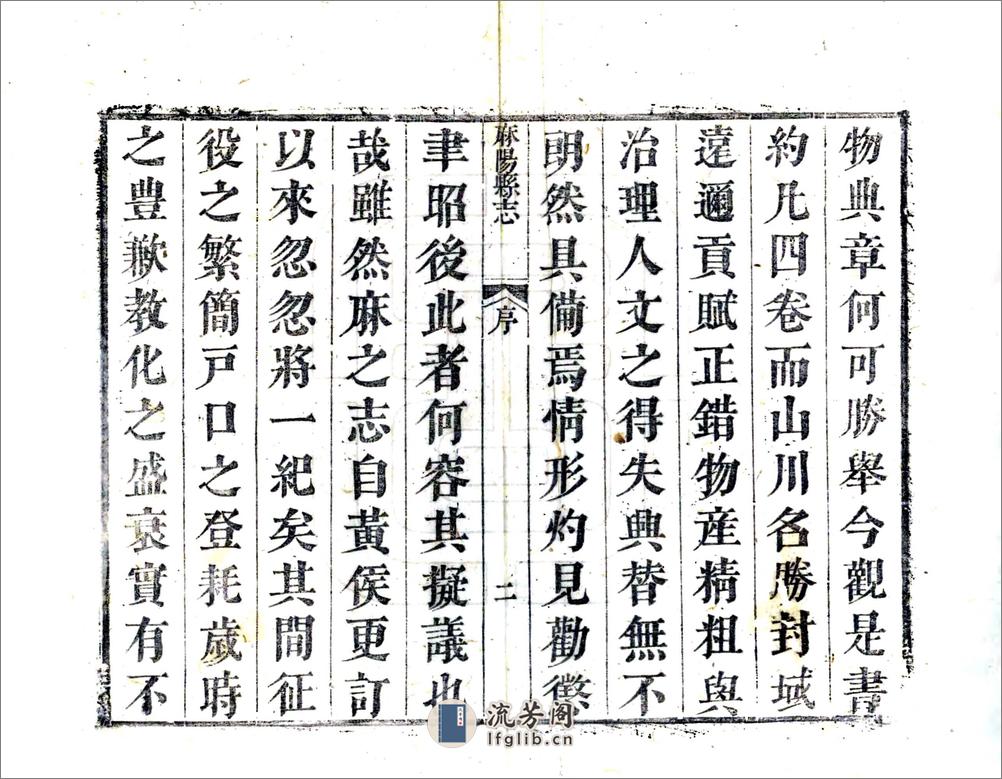 物典章何可勝舉今觀是書
約凡四卷而山川名勝封域
遠邇貢賦正錯物産精粗與
治理人文之得失興替無不
朗然具備焉情形灼見勸懲
麻陽縣志
序
二
聿昭後此者何容其擬議也
哉雖然麻之志自黃侯更訂
以來忽忽將一紀矣其間征
役之繁簡戸口之登耗歲時
之豊歉教化之盛衰實有不
流芳阁
lfglib.cn